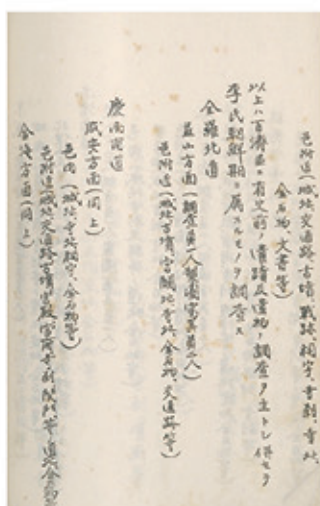 邑附近(城址、交通路、古墳、戰跡、祠宇、書割、寺址、
金石物、文書等)
以上ハ百濟并ニ有史前ノ遺蹟及遺物ノ調査ヲ主トシ併セテ
李氏朝鮮期ニ属スルモノヲ調査ス
全羅北道
益山方面(調査員一人製圖寫真員一人)
邑附近(城址、古墳、宮闕址、寺址、金石物、交通路等)
慶尚南道
咸安方面(同上)
邑内(城址、寺址、祠宇、金石物等)
邑附近(城址、交通路、古墳、宮殿、官衙、寺刹、関門等
金海方面(同上)